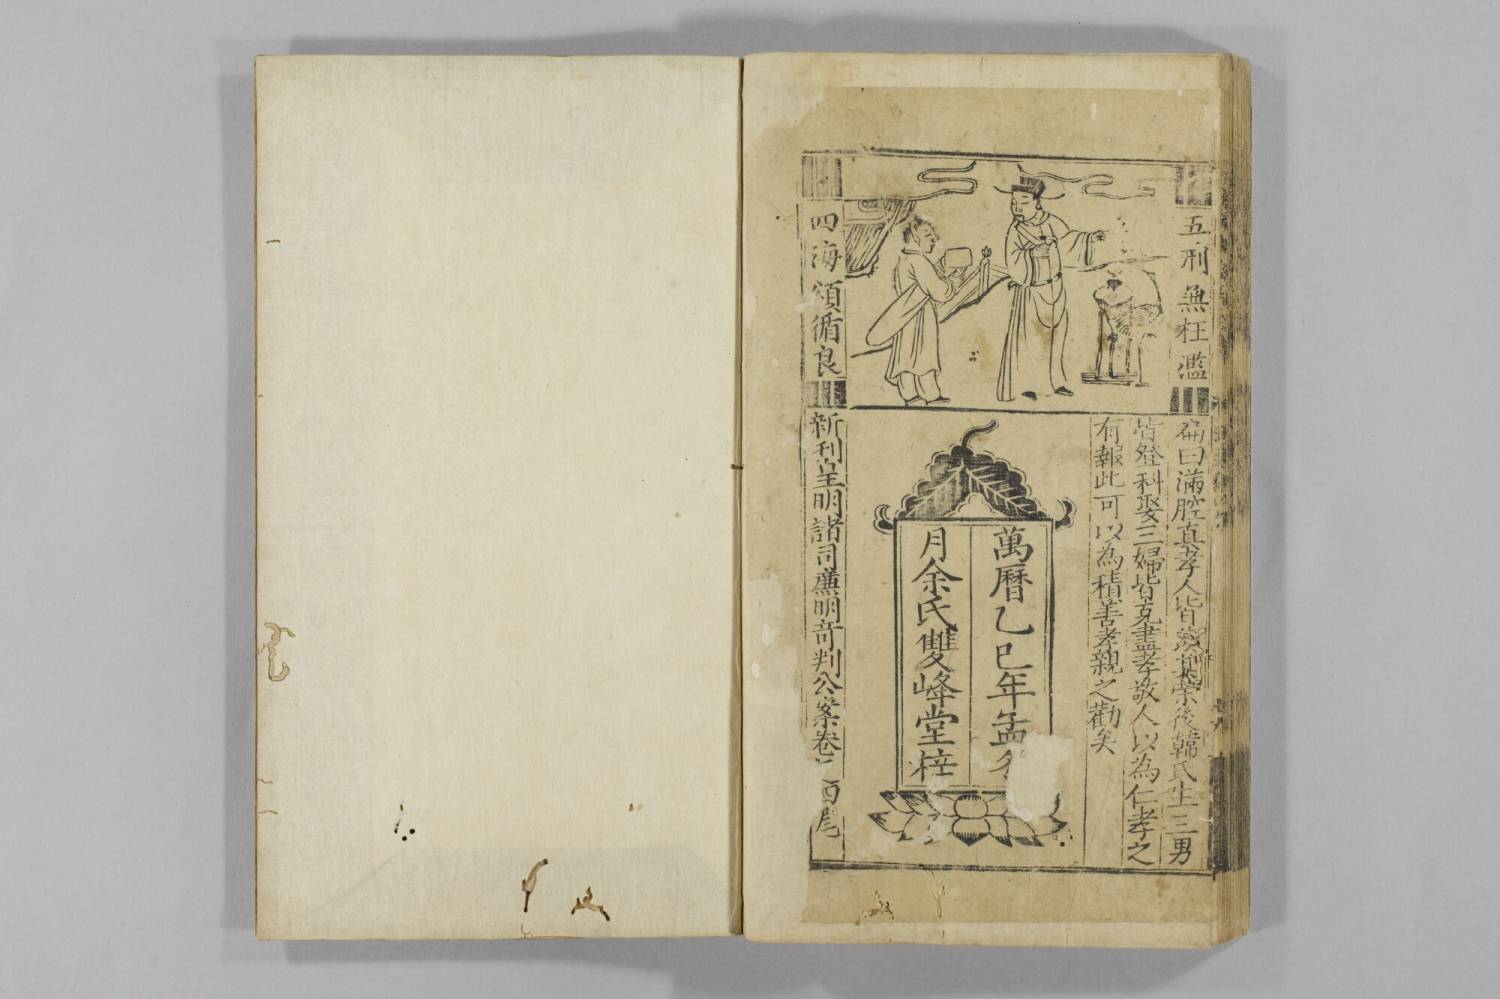 五刑無枉濫
四海頌循良
扁曰滿腔真孝人皆羨其榮後韓氏生三男
皆登科娶三婦皆克盡孝敬人以為仁孝之
有報此可以為積善孝親之勸矣
萬曆乙巳年孟
月余氏雙峰堂梓
新刋皇明諸司廉明竒判公案卷 四尾